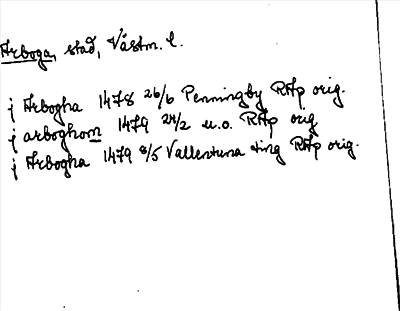 Arboga, stad, Västm. l.
j Arbogha 1478 26/6 Penningby RAp orig.
j arboghom 1479 24/2 u.o. RAp orig
j Arbogha 1479 8/5 Vallentuna ting RAp orig.